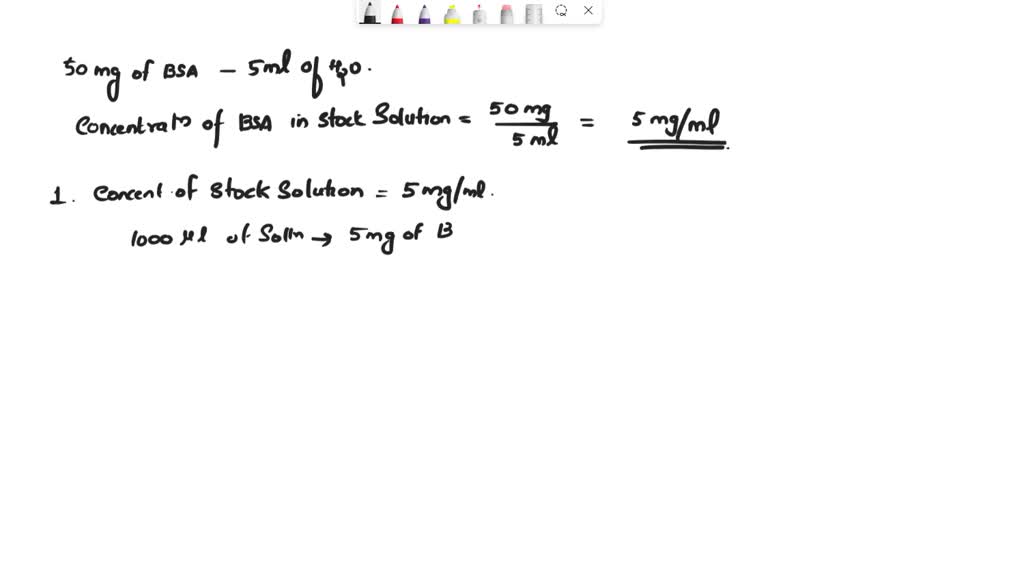 50 mg of BSA - 5ml of H2O.
Concentratn of BSA in stock Solution = 50 mg / 5 ml = 5 mg/ml
1. Concent. of Stock Solution = 5 mg/ml.
1000 μl of Solln → 5mg of B